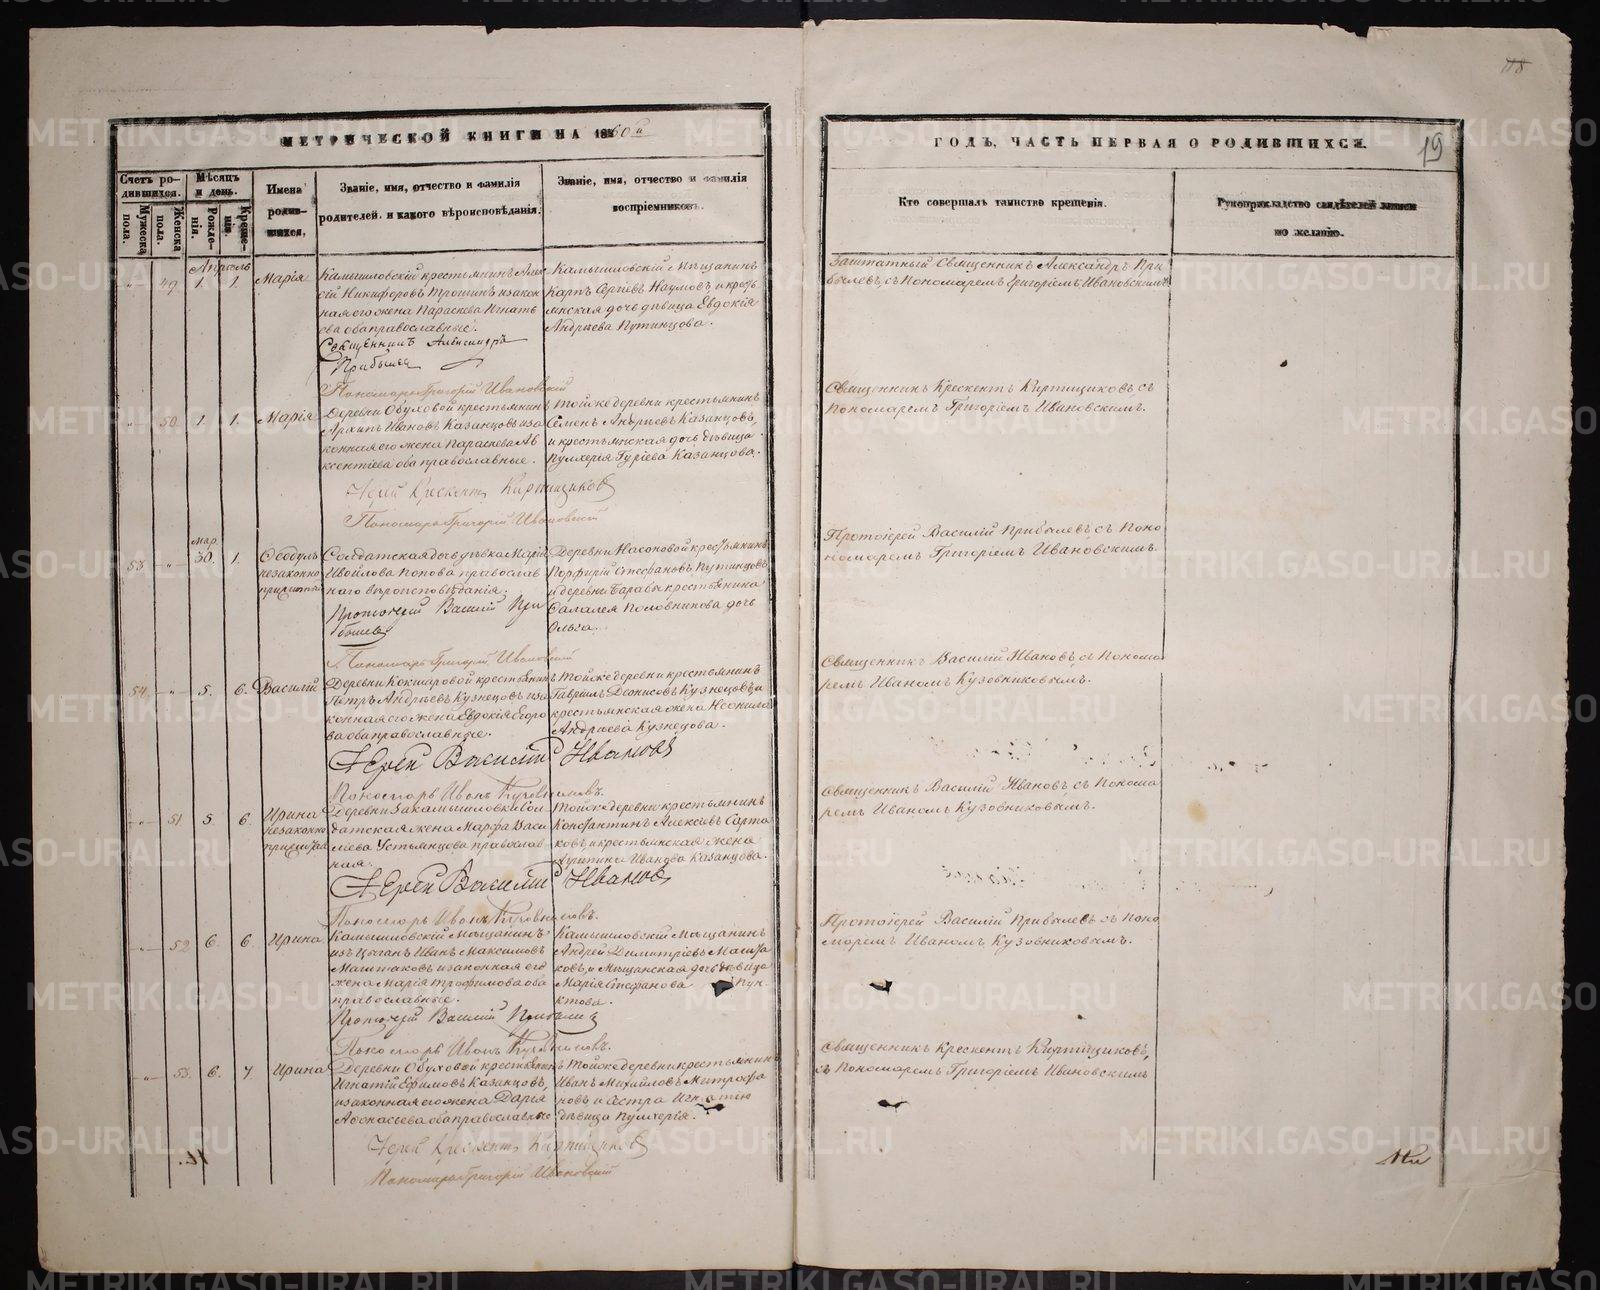 118
МЕТРИЧЕСКОЙ КНИГИ НА 1860й
ГОДЪ, ЧАСТЬ ПЕРВАЯ О РОДИВШИХСЯ.
19
Счетъ родившихся.
Мужеска пола.
Женска пола.
Мѣсяцъ и день.
Рожденія.
Крещенія.
Имена родившихся.
Званіе, имя, отчество и фамилія
родителей, и какого вѣроисповѣданія.
Званіе, имя, отчество и фамилія
воспріемниковъ.
Кто совершалъ таинство крещенія.
Рукоприкладство свидѣтелей записи
по желанію.
Апрѣль
49. 1. 1. Марія
Камышловскій крестьянинъ Алек
сій Никифоровъ Трошинъ и закон
ная его жена Параскева Игнать
ева оба православные.
Священникъ Александръ
Прибылевъ
Пономарь Григорій Ивановскій
Камышловскій Мѣщанинъ
Карпъ Сергіевъ Наумовъ, и кресть
янская дочь дѣвица Евдокія
Андреева Путинцова.
Заштатный Священникъ Александръ При
былевъ, съ Пономаремъ Григоріемъ Ивановскимъ.
50. 1. 1. Марія
Деревни Обуховой крестьянинъ
Архипъ Ивановъ Казанцовъ и за
конная его жена Параскева Ав
ксентіева оба православные.
Іерей Крескентъ Киртищиковъ
Пономарь Григорій Ивановскій
Тойже деревни крестьянинъ
Семенъ Андреевъ Казанцовъ,
и крестьянская дочь дѣвица
Пулхерія Гуріева Казанцова.
Священникъ Крескентъ Киртищиковъ съ
Пономаремъ Григоріемъ Ивановскимъ.
53. Мар. 30. 1. Ѳеодулъ
незаконно
прижитый
Солдатская дочь дѣвка Марія
Ивойлова Попова православ
наго вѣроисповѣданія.
Протоіерей Василій При
былевъ
Пономарь Григорій Ивановскій
Деревни Насоновой крестьянинъ
Порфирій Стефановъ Путинцовъ
и деревни Барабы крестьянина
Салалея Половникова дочь
Ольга.
Протоіерей Василій Прибылевъ съ Поно
номаремъ Григоріемъ Ивановскимъ.
54. 5. 6. Василій
Деревни Кокшаровой крестьянинъ
Петръ Андреевъ Кузнецовъ и за
конная его жена Евдокія Егоро
ва оба православные.
Іерей Василій Ивановъ
Пономарь Иванъ Кузовниковъ.
Тойже деревни крестьянинъ
Гавріилъ Деонисовъ Кузнецовъ и
крестьянская жена Неонила
Андреева Кузнецова.
Священникъ Василій Ивановъ съ Понома
ремъ Иваномъ Кузовниковымъ.
51 5 6. Ирина
незаконно
прижитая
Деревни Закамышловки Сол
датская жена Марѳа Васи
лиева Устьянцова православ
ная.
Іерей Василій Ивановъ
Пономарь Иванъ Кузовниковъ.
Тойже деревни крестьянинъ
Константинъ Алексіевъ Сарта
ковъ и крестьянская жена
Іустина Иванова Казанцова.
Священникъ Василій Ивановъ съ Понома
ремъ Иваномъ Кузовниковымъ.
52 6. 6 Ирина
Камышловскій Мѣщанинъ
изъ цыганъ Иванъ Максимовъ
Маштаковъ и законная его
жена Марія Трофимова оба
православные.
Протоіерей Василій Прибылевъ
Пономарь Иванъ Кузовниковъ.
Камышловскій Мѣщанинъ
Андрей Димитріевъ Машта
ковъ, и Мѣщанская дочь дѣвица
Марія Стефанова Пун
ктова.
Протоіерей Василій Прибылевъ съ Поно
маремъ Иваномъ Кузовниковымъ.
53. 6. 7 Ирина
Деревни Обуховой крестьянинъ
Игнатій Ефимовъ Казанцовъ,
и законная его жена Дарія
Аѳонасьева оба православные
Іерей Крескентъ Киртищиковъ
Пономарь Григорій Ивановскій
Тойже деревни крестьянинъ
Иванъ Михайловъ Митрофа
новъ и сестра Игнатію
дѣвица Пулхерія.
Священникъ Крескентъ Киртищиковъ,
съ Пономаремъ Григоріемъ Ивановскимъ
METRIKI.GASO-URAL.RU